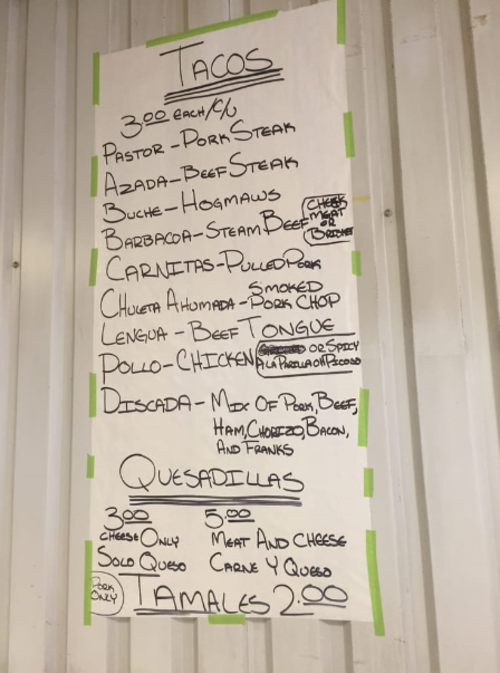 TACOS
3.00 EACH/C/U
PASTOR-PORK STEAK
AZADA-BEEF STEAK
BUCHE-HOGMAWS
BARBACOA-STEAM BEEF
CHEEK
MEAT
OR
BRISKET
CARNITAS-PULLED PORK
CHULETA AHUMADA-SMOKED PORK CHOP
LENGUA-BEEF TONGUE
POLLO-CHICKEN
OR SPICY
A LA PARILLA OR PICOSO
DISCADA-MIX OF PORK, BEEF,
HAM, CHORIZO, BACON,
AND FRANKS
QUESADILLAS
3.00 5.00
CHEESE ONLY MEAT AND CHEESE
SOLO QUESO CARNE Y QUESO
PORK
ONLY
TAMALES 2.00